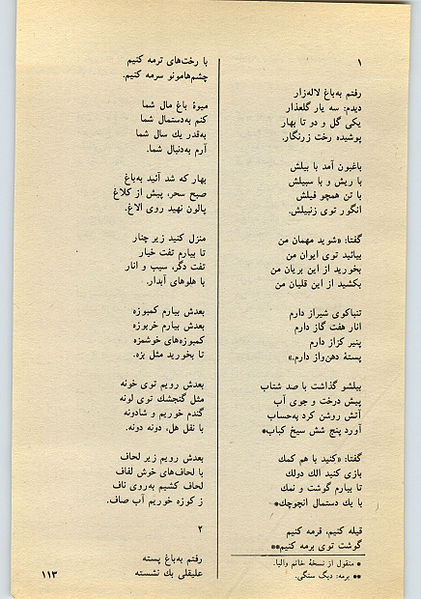 ۱
رفتم به‌باغ لاله‌زار
دیدم: سه یار گلعذار
یکی گل و دو تا بهار
پوشیده رخت زرنگار.
باغبون آمد با بیلش
با ریش و با سبیلش
با تن همچو فیلش
انگور توی زنبیلش.
گفتا: «شوید مهمان من
بیائید توی ایوان من
بخورید از این بریان من
بکشید از این قلیان من
تنباکوی شیراز دارم
انار هفت گاز دارم
پنیر کزاز دارم
پستهٔ دهن‌واز دارم.»
بیلشو گذاشت با صد شتاب
پیش درخت و جوی آب
آتش روشن کرد به‌حساب
آورد پنج شش سیخ کباب*
گفتا: «کنید با هم کمك
بازی کنید الك دولك
تا بیارم گوشت و نمك
با یك دستمال انچوچك*
قیله کنیم، قرمه کنیم
گوشت توی برمه کنیم**
* منقول از نسخهٔ خانم والیا.
** برمه: دیگ سنگی.
با رخت‌های ترمه کنیم
چشم‌هامونو سرمه کنیم.
میوهٔ باغ مال شما
کنم به‌دستمال شما
به‌قدر یك سال شما
آرم به‌دنبال شما.
بهار که شد آئید به‌باغ
صبح سحر، پیش از کلاغ
پالون نهید روی الاغ.
منزل کنید زیر چنار
تا بیارم تفت خیار
تفت دگر، سیب و انار
با هلوهای آبدار.
بعدش بیارم کمبوزه
بعدش بیارم خربوزه
کمبوزه‌های خوشمزه
تا بخورید مثل بزه.
بعدش رویم توی خونه
مثل گنجشك توی لونه
گندم خوریم و شادونه
با نقل هل، دونه دونه.
بعدش رویم زیر لحاف
با لحاف‌های خوش لفاف
لحاف کشیم به‌روی ناف
ز کوزه خوریم آب صاف.
۲
رفتم به‌باغ پسته
علیقلی بك نشسته
۱۱۳